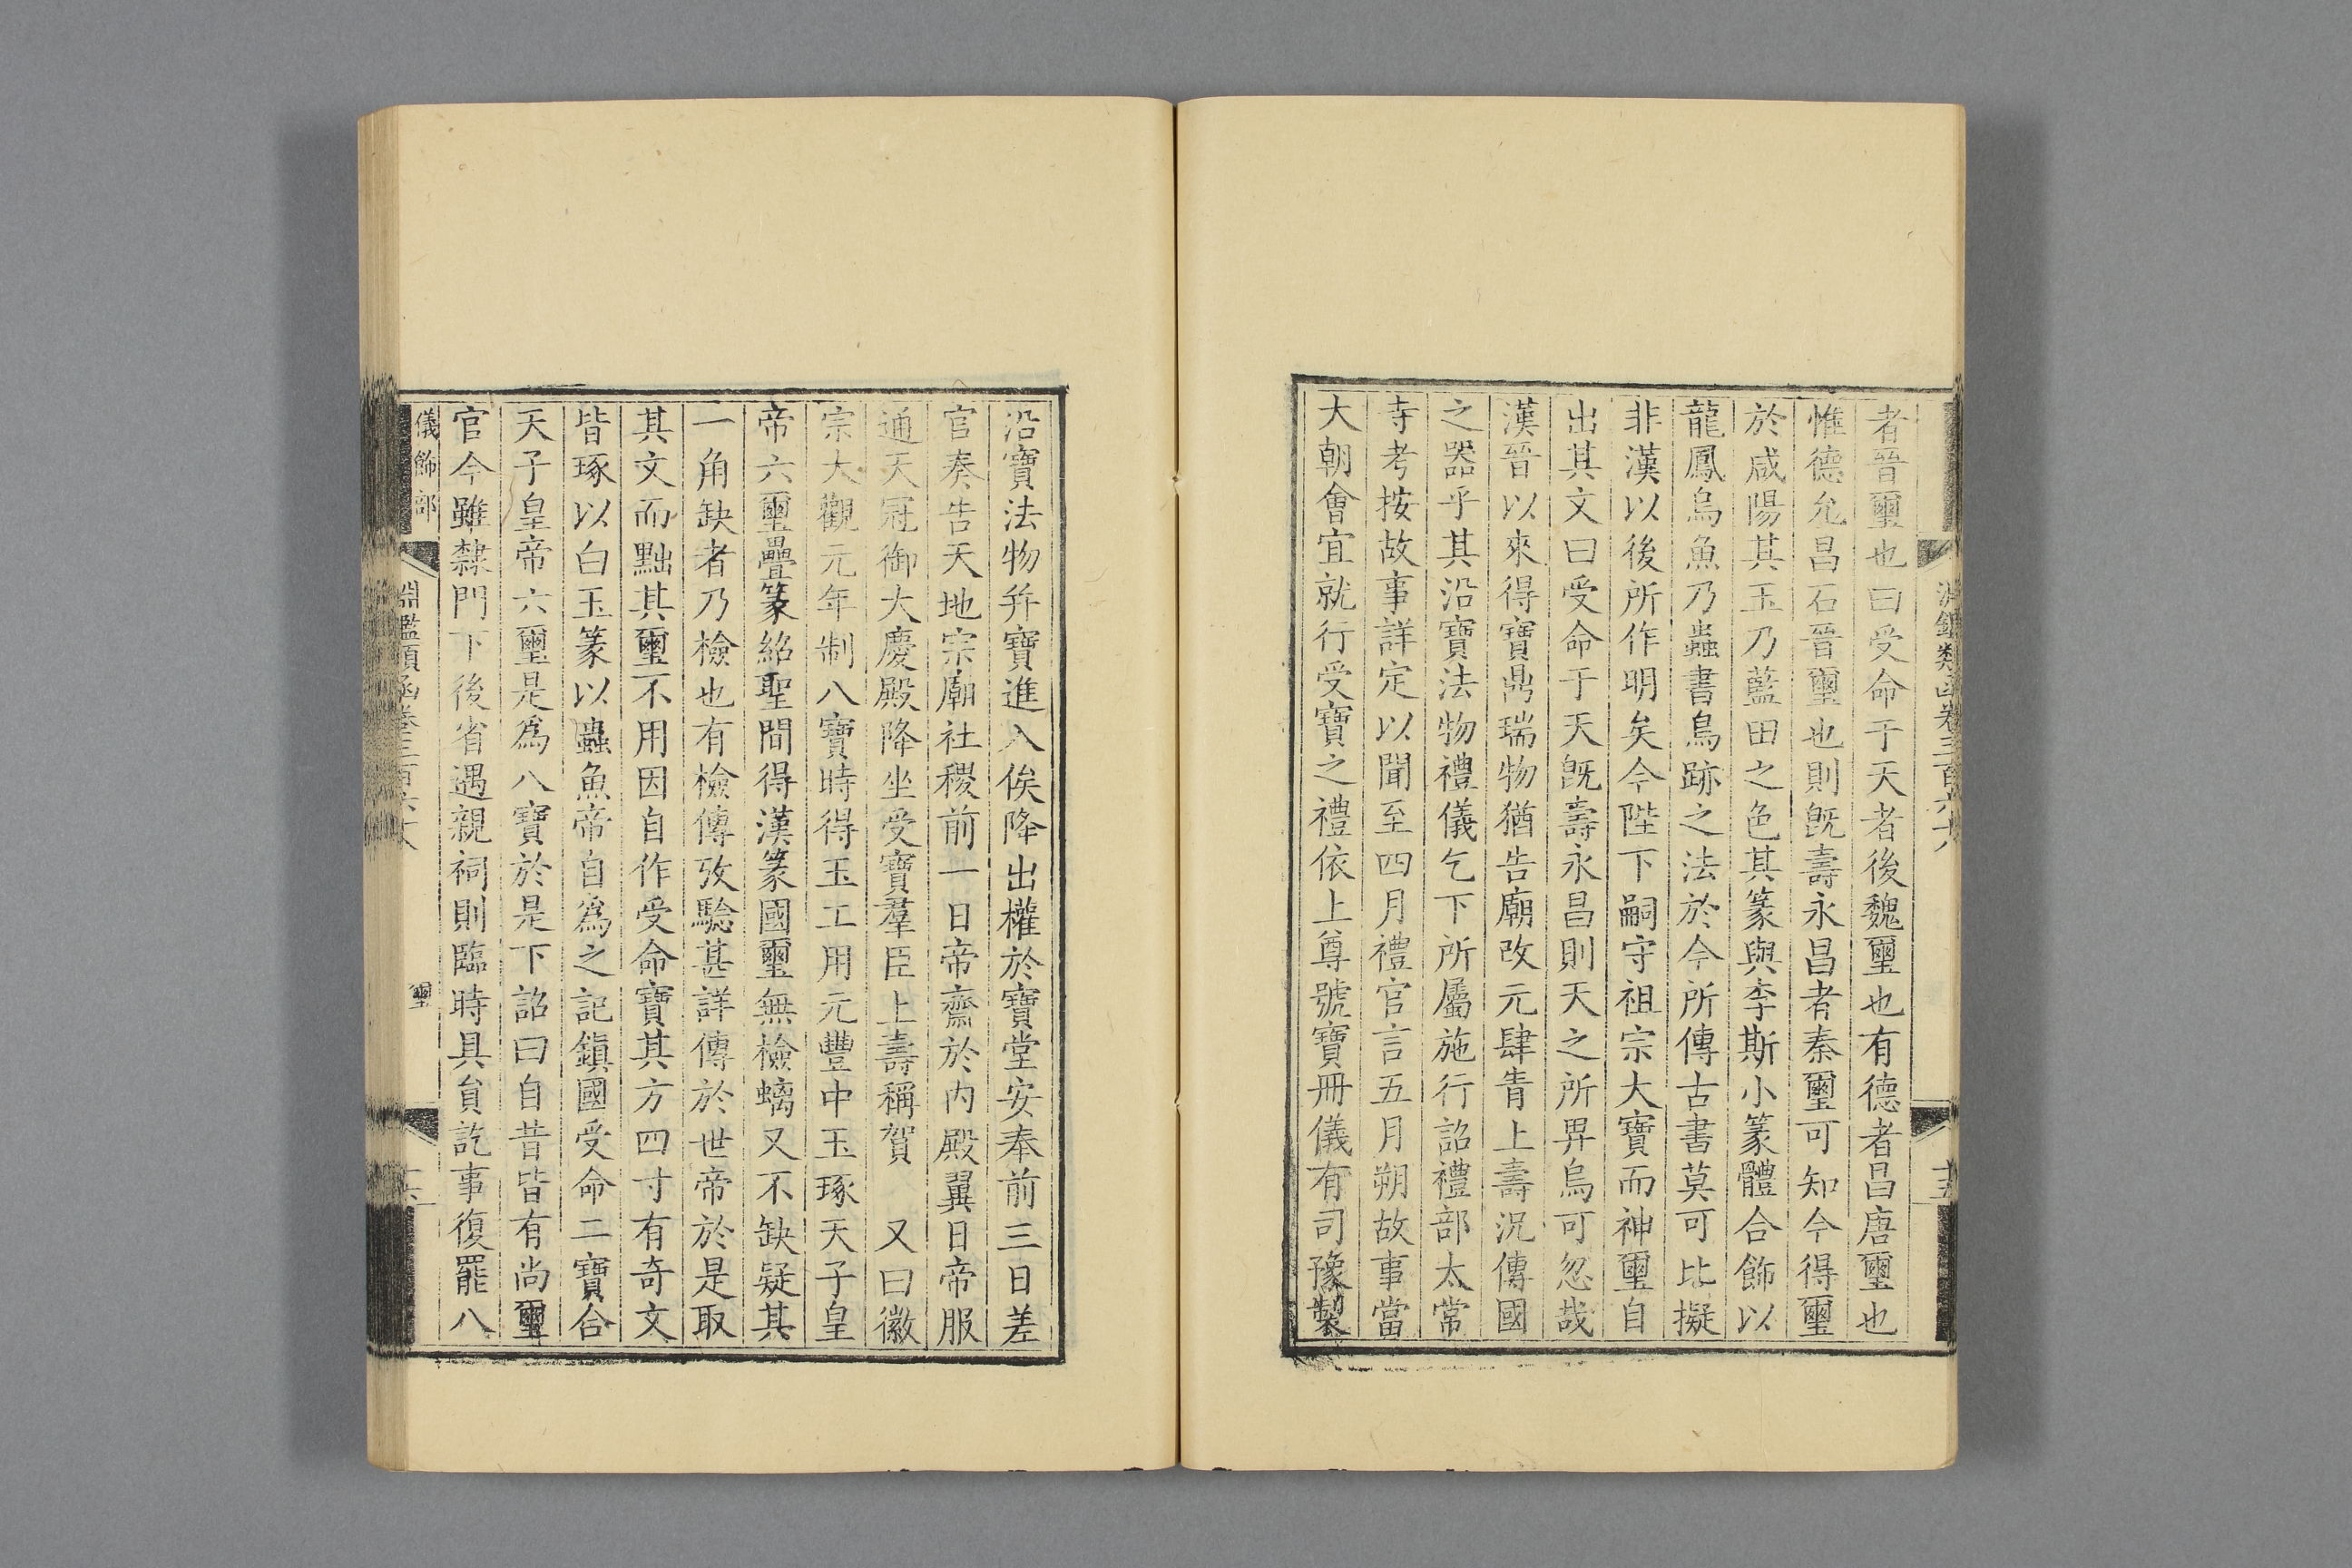 淵鑑類函卷三百六十八
十五
者晉璽也曰受命于天者後魏璽也有德者昌唐璽也
惟德允昌石晉璽也則既壽永昌者秦璽可知今得璽
於咸陽其玉乃藍田之色其篆與李斯小篆體合飾以
龍鳳鳥魚乃蟲書鳥跡之法於今所傳古書莫可比擬
非漢以後所作明矣今陛下嗣守祖宗大寶而神璽自
出其文曰受命于天既壽永昌則天之所畀烏可忽哉
漢晉以來得寶鼎瑞物猶告廟改元肆眚上壽況傳國
之器乎其沿寶法物禮儀乞下所屬施行詔禮部太常
寺考按故事詳定以聞至四月禮官言五月朔故事當
大朝會宜就行受寶之禮依上尊號寶冊儀有司豫製
沿寶法物并寶進入俟降出權於寶堂安奉前三日差
官奏告天地宗廟社稷前一日帝齋於內殿翼日帝服
通天冠御大慶殿降坐受寶羣臣上壽稱賀　又曰徽
宗大觀元年制八寶時得玉工用元豐中玉琢天子皇
帝六璽疊篆紹聖間得漢篆國璽無檢螭又不缺疑其
一角缺者乃檢也有檢傳攷驗甚詳傳於世帝於是取
其文而黜其璽不用因自作受命寶其方四寸有奇文
皆琢以白玉篆以蟲魚帝自爲之記鎮國受命二寶合
天子皇帝六璽是爲八寶於是下詔曰自昔皆有尚璽
官今雖隸門下後省遇親祠則臨時具員訖事復罷八
儀飾部
淵鑑類函卷三百六十八
璽
十六